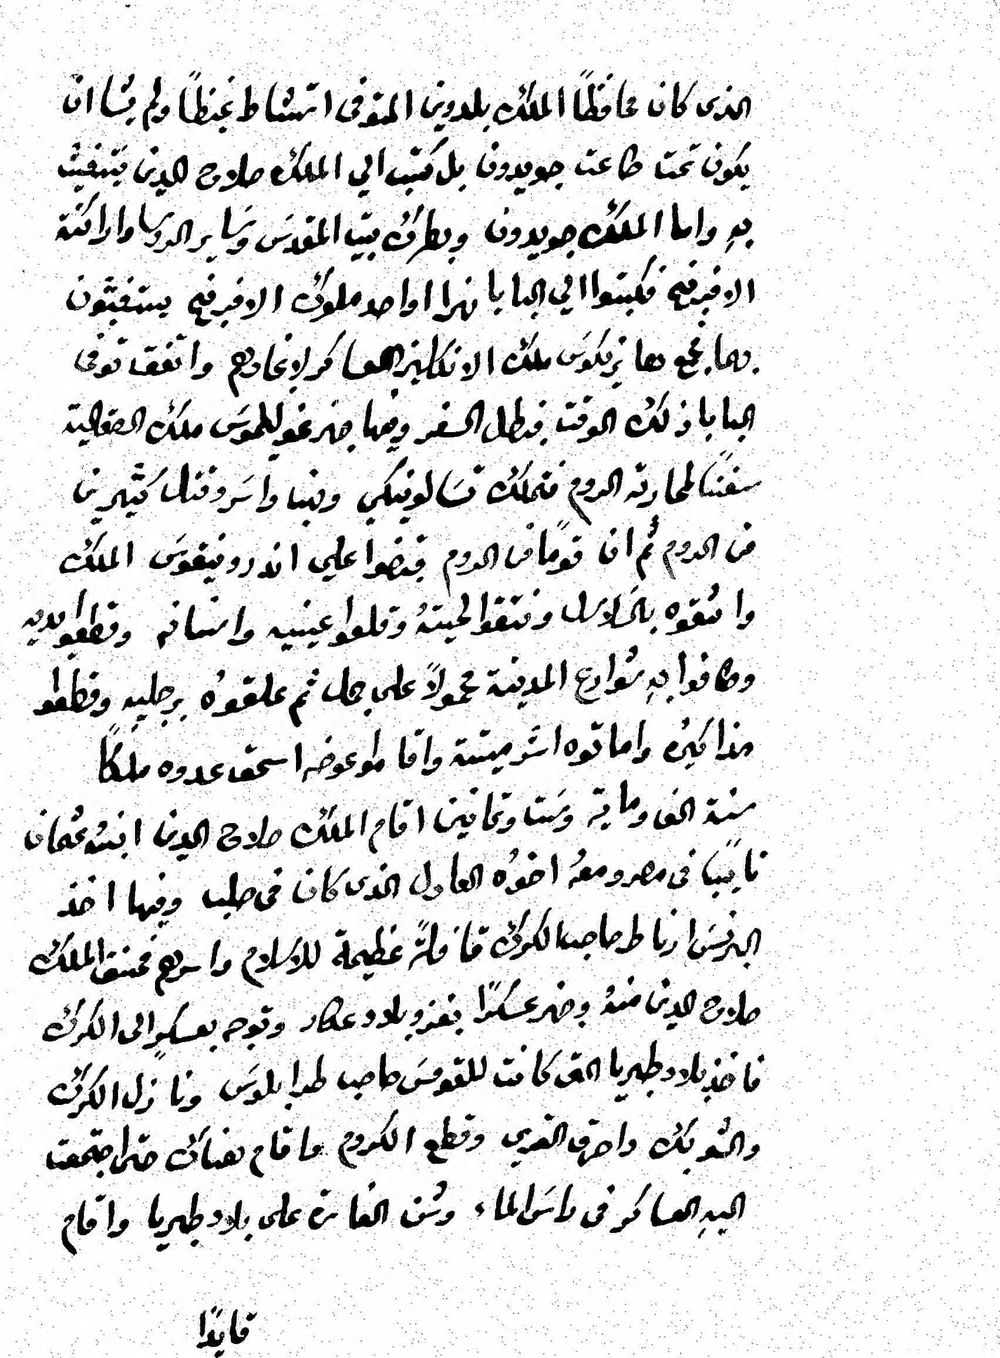 الذى كان محافظاً الملك بلدوين المتوفى استشاط غيظاً ولم يشا ان
يكون تحت طاعت جويدون بل كتب الي الملك صلاح الدين يستغيث
به واما الملك جويدون وبطرك بيت المقدس وساير الروسا واراكنة
الافرنج فكتبوا الي البابا نهرا اواحد ملوك الافرنج يستغيثون
بهما فجمع هانريكوس ملك الانكليز العساكر لانجادهم واتفق توفى
البابا ذلك الوقت فبطل السفر وفيها جهز غوليلموس ملك الصقالية
سفنًا لمحاربة الروم فتملك تسالونيكي ونهبا واسر وقتل كثيرين
من الروم ثم ان قومًا من الروم قبضوا علي اندرونيقوس الملك
واثقوه بالسلاسل ونتفوا لحيته وقلعوا عينيه واسنانه وقطعوا يديه
وطافوا به شوارع المدينة محمولاً على جمل ثم علقوه برجليه وقطعوا
مذاكيره واماتوه اشر ميتة واقاموا عوضه اسحق عدوه ملكًا
سنة الف وماية وست وثمانين اقام الملك صلاح الدين ابنه عثمان
نايبًا فى مصر ومعه اخوه العادل الذى كان فى حلب وفيها اخذ
البرنس ارناط صاحب الكرك قافلةً عظيمة للاسلام واسرهم فحنق الملك
صلاح الدين منه وجهز عسكرًا بغزو بلاد عكار وتوجه بعسكرٍ الى الكرك
فاخذ بلاد طبريا التى كانت للقومس صاحب طرابلوس ونازل الكرك
والشوبك واحرق القرى وقطع الكروم واقام هناك حتى اجتمعت
اليه العساكر فى راس الماء وشن الغارة على بلاد طبريا واقام
قايدًا